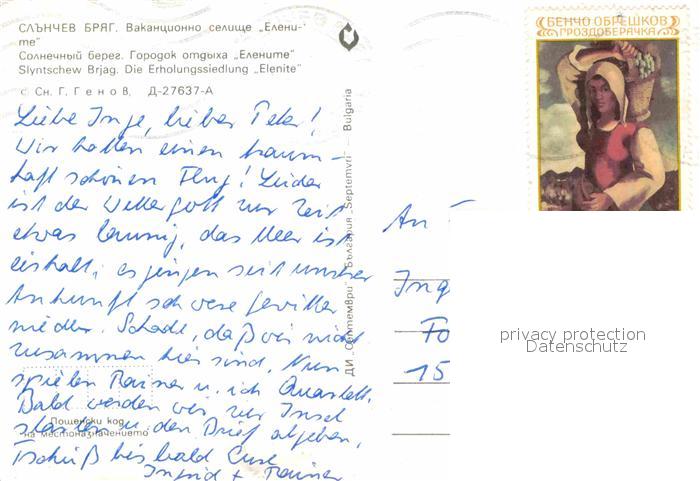 СЛЪНЧЕВ БРЯГ. Ваканционно селище „Елени-
те"
Солнечный берег. Городок отдыха „Елените"
Slyntschew Brjag. Die Erholungssiedlung „Elenite"
с Сн. Г. Генов, Д-27637-А
Liebe Inge, lieber Peter!
Wir hatten einen traum-
haft schönen Flug! Leider
ist der Wettergott zur Zeit
etwas launig, das Meer ist
eiskalt, es gingen seit unsrer
Ankunft schwere Gewitter
nieder. Schade, daß wir nicht
zusammen hier sind. Nun
spielen Rainer u. ich
Bald werden wir zur Insel
u. den Brief abgeben,
Tschüß bis bald Eure
Ingrid + Rainer
Пощенски код
на местоназначението
ДИ „Септември" · България „Septemvri" — Bulgaria
БЕНЧО ОБРЕШКОВ
ГРОЗДОБЕРАЧКА
An
Ing
Fo
15
privacy protection
Datenschutz